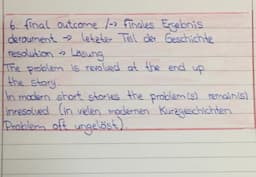 6. final outcome /-> finales Ergebnis
deroument -> letzter Teil der Geschichte
resolution -> Lösung
The problem is revolved at the end up
the story.
In modern short stories the problem(s) remain(s)
inresolved (in vielen modernen Kurzgeschichten
Problem oft ungelöst).